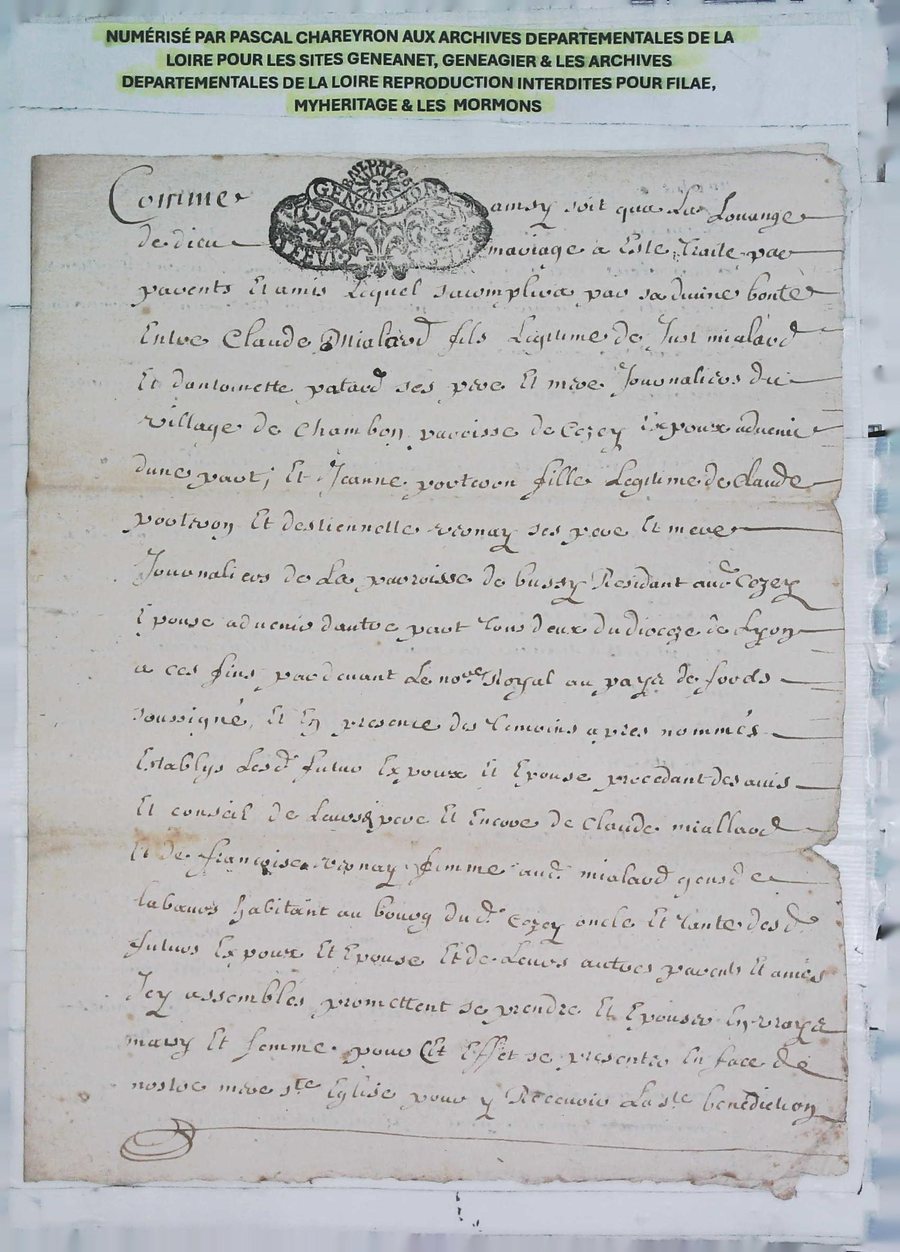 NUMÉRISÉ PAR PASCAL CHAREYRON AUX ARCHIVES DEPARTEMENTALES DE LA
LOIRE POUR LES SITES GENEANET, GENEAGIER & LES ARCHIVES
DEPARTEMENTALES DE LA LOIRE REPRODUCTION INTERDITES POUR FILAE,
MYHERITAGE & LES MORMONS
GEN.DE.LYON
Comme ainsy soit que La Louange
de dieu mariage a Este Traité par
parents Et amis Lequel sacomplira par sa divine bonté
Entre Claude Mialard fils Legitime de Just mialard
Et dantoinette patard ses pere Et mere Journaliers du
village de Chambon paroisse de Cezey Expoux advenir
dune part; Et Jeanne portron fille Legitime de Claude
portron Et destiennette vernay ses pere Et mere
Journaliers de La parroisse de bussy Residant aud Cezey
Epouse advenir dautre part Tous deux du dioceze de Lyon
a ces fins pardevant Le nore Royal au pays de fords
soussigné, Et En presence des Temoins apres nommés
Establys Lesd futur Expoux Et Epouse procedant des avis
Et conseil de Leurs pere Et Encore de Claude miallard
Et de françoise vernay femme aud mialard gens de
labeurs habitant au bourg dud Cezey oncle Et Tante des d
futurs Expoux Et Epouse Et de Leurs autres parents Et amies
Icy assemblés promettent se prendre Et Epouser En vrays
mary Et femme pour Cet Effet se presenter En face de
nostre mere ste Eglise pour y Recevoir La ste benediction